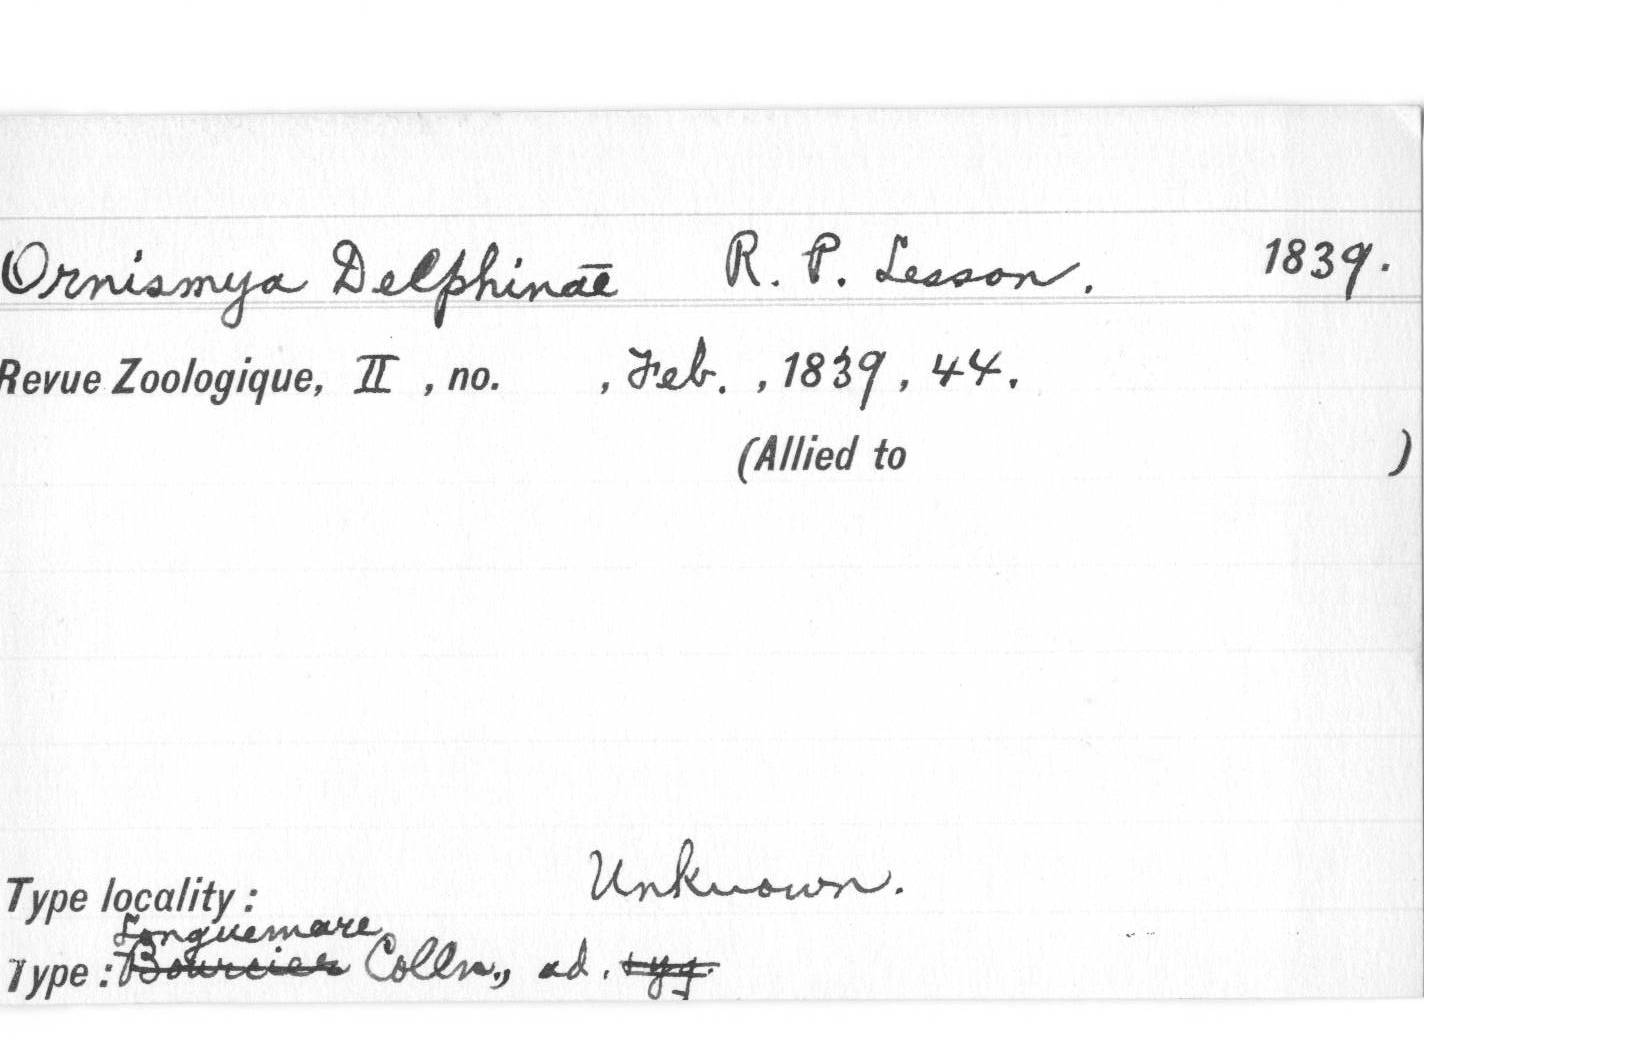 Ornismya Delphinae R. P. Lesson. 1839.
Revue Zoologique, II , no. , Feb. , 1839 , 44.
(Allied to )
Type locality: Unknown.
Longuemare
Type: Bourcier Colln., ad. + yg.